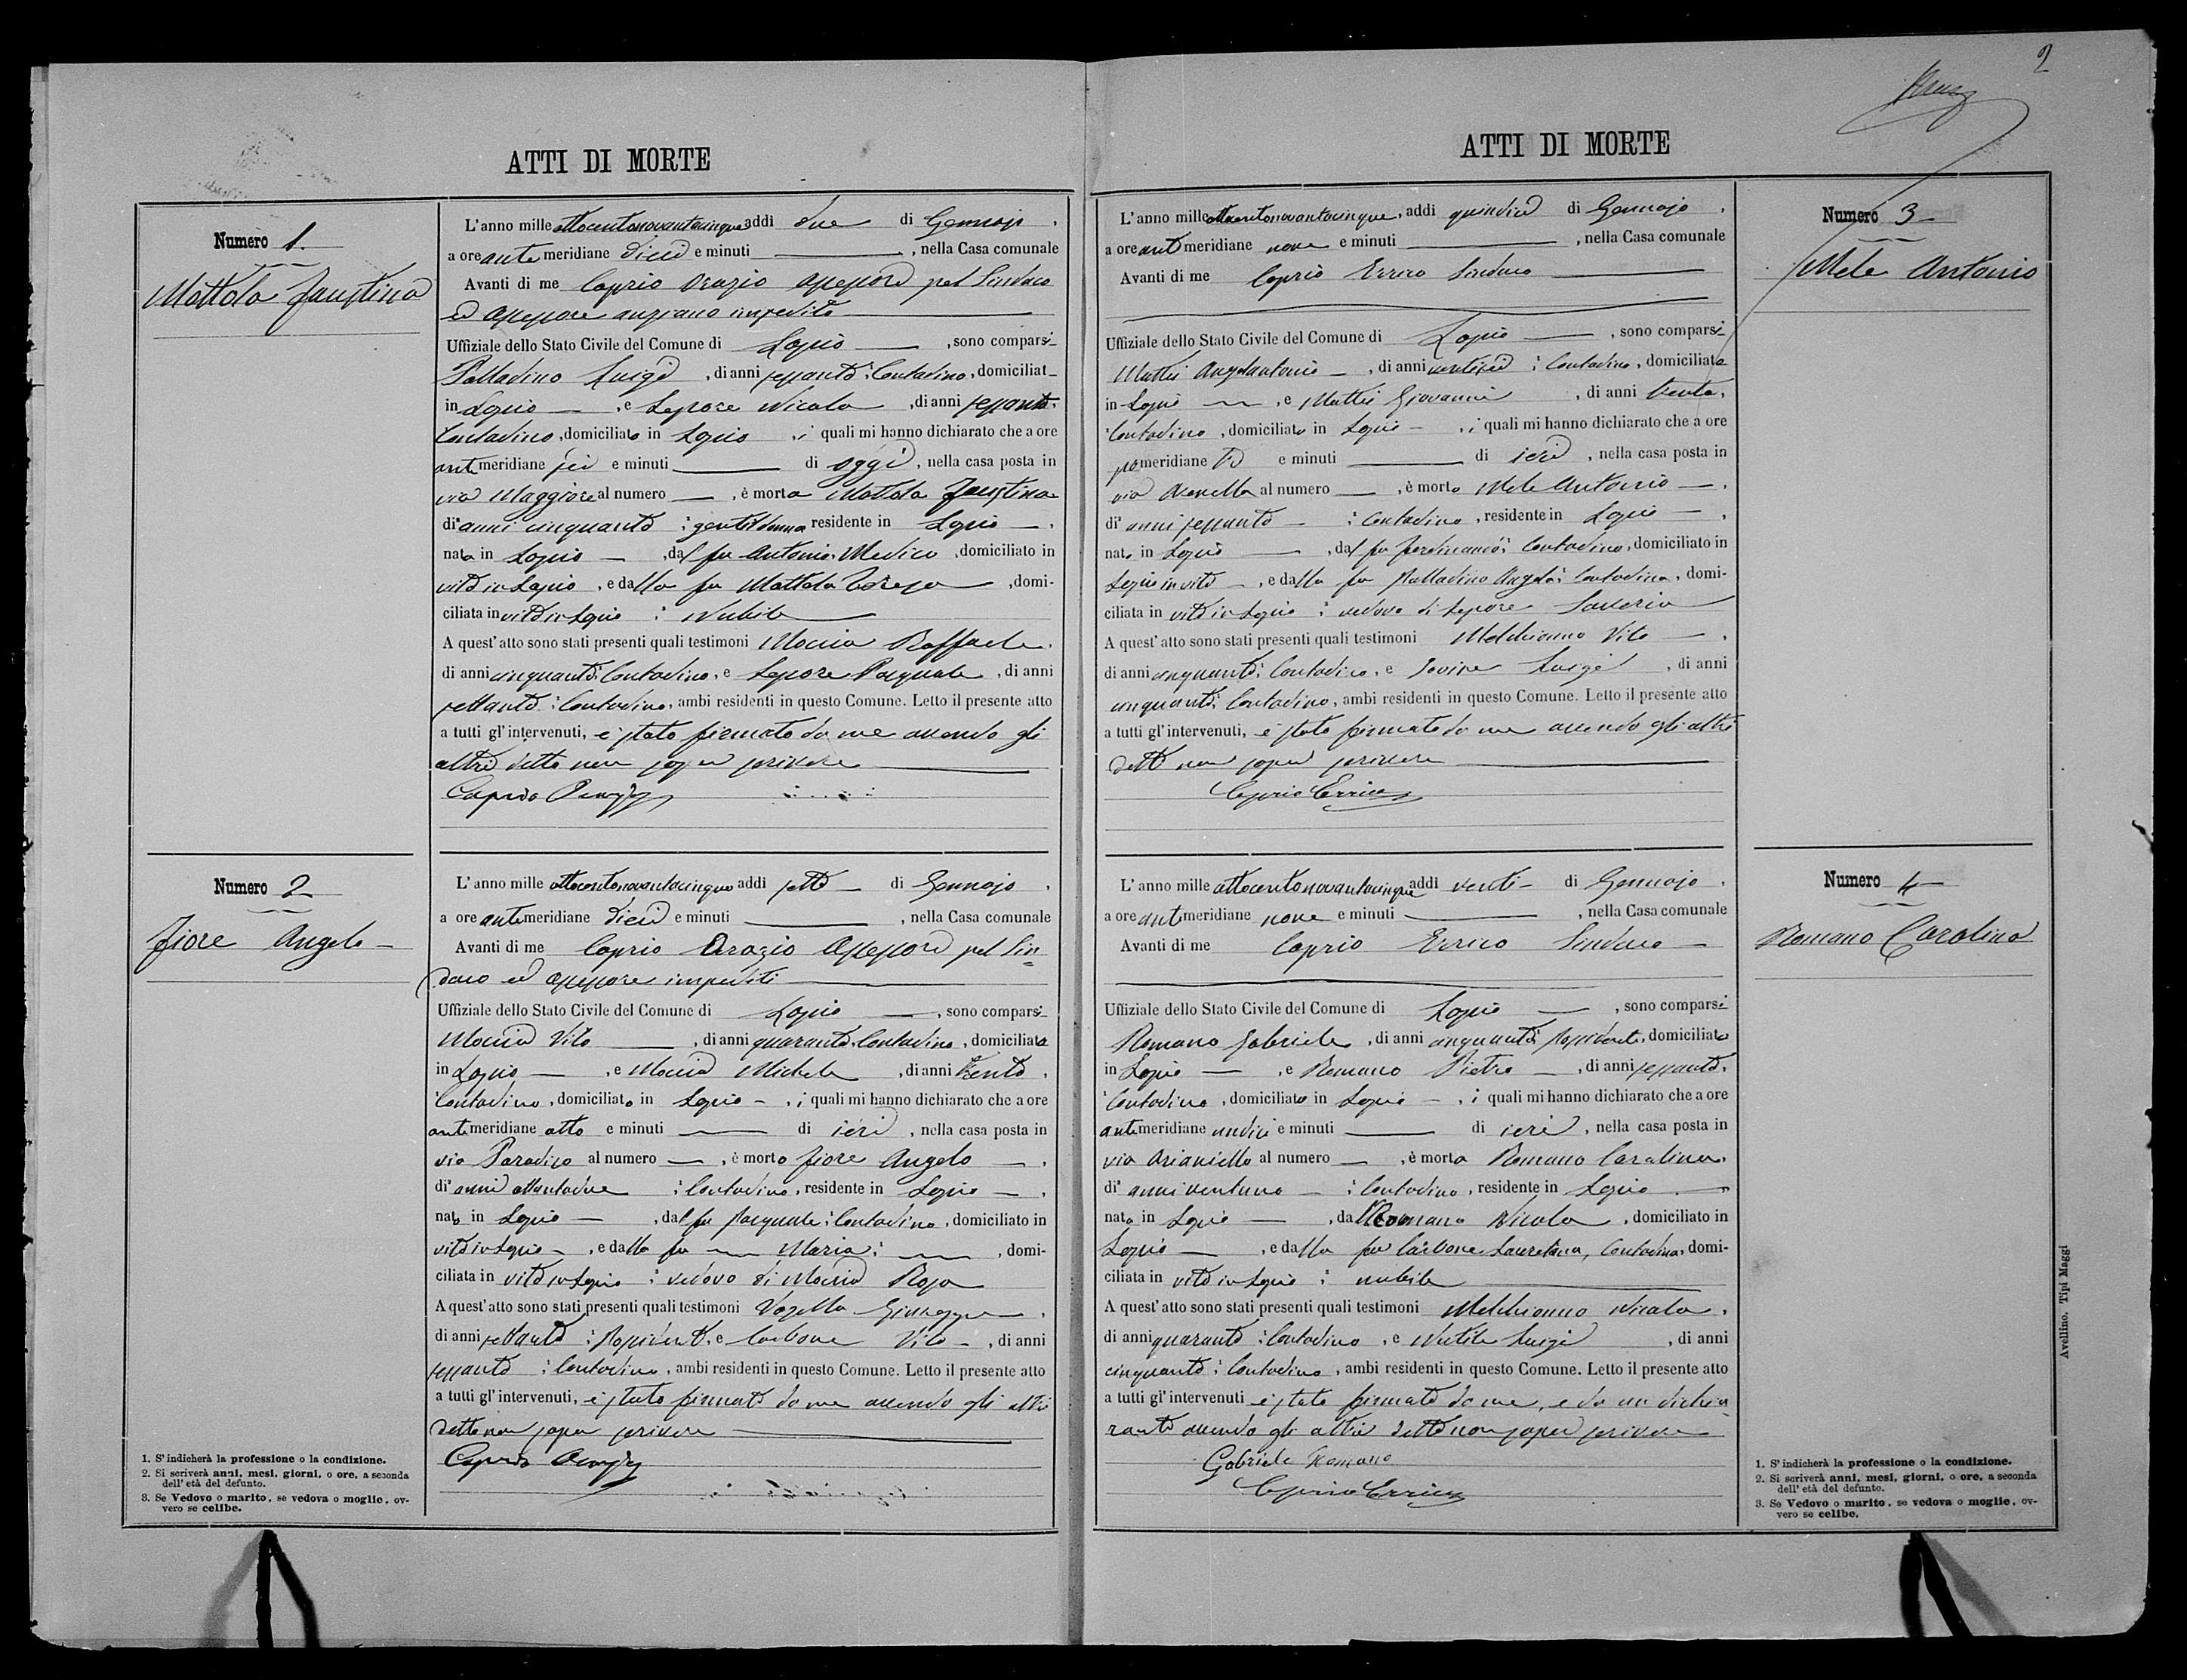 ATTI DI MORTE
Numero 1.
Mattola Faustina
L'anno mille ottocentonovantacinque addì due di Gennajo,
a ore ante meridiane dieci e minuti , nella Casa comunale
Avanti di me Caprio Orazio Assessore pel Sindaco
ed Assessore anziano impediti
Uffiziale dello Stato Civile del Comune di Lapio , sono comparsi
Palladino Luigi , di anni sessanta, Contadino, domiciliat
in Lapio , e Lepore Nicola , di anni sessanta,
Contadino, domiciliato in Lapio , i quali mi hanno dichiarato che a ore
antimeridiane sei e minuti di oggi , nella casa posta in
via Maggiore al numero , è morta Mattola Faustina
di anni cinquanta, gentildonna residente in Lapio ,
nata in Lapio , dal fu Antonio, Medico, domiciliato in
vita in Lapio , e dalla fu Mattola Teresa , domi-
ciliata in vita in Lapio , Nubile
A quest'atto sono stati presenti quali testimoni Moccia Raffaele,
di anni cinquanta, Contadino, e Lepore Pasquale , di anni
settanta, Contadino, ambi residenti in questo Comune. Letto il presente atto
a tutti gl'intervenuti, è stato firmato da me avendo gli
altri detto non saper scrivere
Caprio Orazio
Numero 2
Fiore Angelo
L'anno mille ottocentonovantacinque addì sette di Gennajo,
a ore antemeridiane dieci e minuti , nella Casa comunale
Avanti di me Caprio Orazio Assessore pel Sin=
daco ed assessore impediti
Uffiziale dello Stato Civile del Comune di Lapio , sono comparsi
Moccia Vito , di anni quaranta, Contadino, domiciliato
in Lapio , e Moccia Michele , di anni trenta,
Contadino, domiciliato in Lapio , i quali mi hanno dichiarato che a ore
antimeridiane otto e minuti di ieri , nella casa posta in
via Paradiso al numero , è morto Fiore Angelo ,
di anni ottantadue , Contadino, residente in Lapio ,
nato in Lapio , dal fu Pasquale, Contadino, domiciliato in
vita in Lapio , e dalla fu Maria, , domi-
ciliata in vita in Lapio , vedovo di Moccia Rosa
A quest'atto sono stati presenti quali testimoni Vozella Giuseppe ,
di anni settanta, Possidente, e Carbone Vito , di anni
sessanta , Contadino, ambi residenti in questo Comune. Letto il presente atto
a tutti gl'intervenuti, è stato firmato da me avendo gli altri
detto non saper scrivere
Caprio Orazio
1. S'indicherà la professione o la condizione.
2. Si scriverà anni, mesi, giorni, o ore, a seconda
dell'età del defunto.
3. Se Vedovo o marito, se vedova o moglie, ov-
vero se celibe.
2
ATTI DI MORTE
Numero 3
Mele Antonio
L'anno mille ottocentonovantacinque, addì quindici di Gennajo ,
a ore antimeridiane nove e minuti , nella Casa comunale
Avanti di me Caprio Errico Sindaco
Uffiziale dello Stato Civile del Comune di Lapio , sono comparsi
Mattis Angelantonio , di anni ventisei , Contadino, domiciliato
in Lapio , e Mattis Giovanni , di anni trenta,
Contadino , domiciliato in Lapio , i quali mi hanno dichiarato che a ore
pomeridiane tre e minuti di ieri , nella casa posta in
via al numero , è morto Mele Antonio ,
di anni sessanta , Contadino, residente in Lapio ,
nato in Lapio , dal fu Ferdinando, Contadino, domiciliato in
Lapio in vita , e dalla fu Palladino Angela, Contadina, domi-
ciliata in vita in Lapio , vedovo di Lepore Saveria
A quest'atto sono stati presenti quali testimoni Melchionno Vito ,
di anni cinquanta, Contadino, e Iovine Luigi , di anni
cinquanta, Contadino, ambi residenti in questo Comune. Letto il presente atto
a tutti gl'intervenuti, è stato firmato da me avendo gli altri
detto non saper scrivere
Caprio Errico
Numero 4
Romano Carolina
L'anno mille ottocentonovantacinque addì venti di Gennajo ,
a ore antimeridiane nove e minuti , nella Casa comunale
Avanti di me Caprio Errico Sindaco
Uffiziale dello Stato Civile del Comune di Lapio , sono comparsi
Romano Gabriele , di anni cinquanta, Possidente, domiciliato
in Lapio , e Romano Pietro , di anni sessanta,
Contadino , domiciliato in Lapio , i quali mi hanno dichiarato che a ore
antimeridiane undici e minuti di ieri , nella casa posta in
via Arianiello al numero , è morta Romano Carolina,
di anni ventuno , Contadina, residente in Lapio
nata in Lapio , da Romano Nicola , domiciliato in
Lapio , e dalla fu Carbone Lauretana, Contadina, domi-
ciliata in vita in Lapio , nubile
A quest'atto sono stati presenti quali testimoni Melchionno Nicola ,
di anni quaranta , Contadino , e Nutile Luigi , di anni
cinquanta, Contadino , ambi residenti in questo Comune. Letto il presente atto
a tutti gl'intervenuti è stato firmato da me, e da un dichia
rante avendo gli altri detto non saper scrivere
Gabriele Romano
Caprio Errico
1. S'indicherà la professione o la condizione.
2. Si scriverà anni, mesi, giorni, o ore, a seconda
dell'età del defunto.
3. Se Vedovo o marito, se vedova o moglie, ov-
vero se celibe.
Avellino, Tipi Maggi